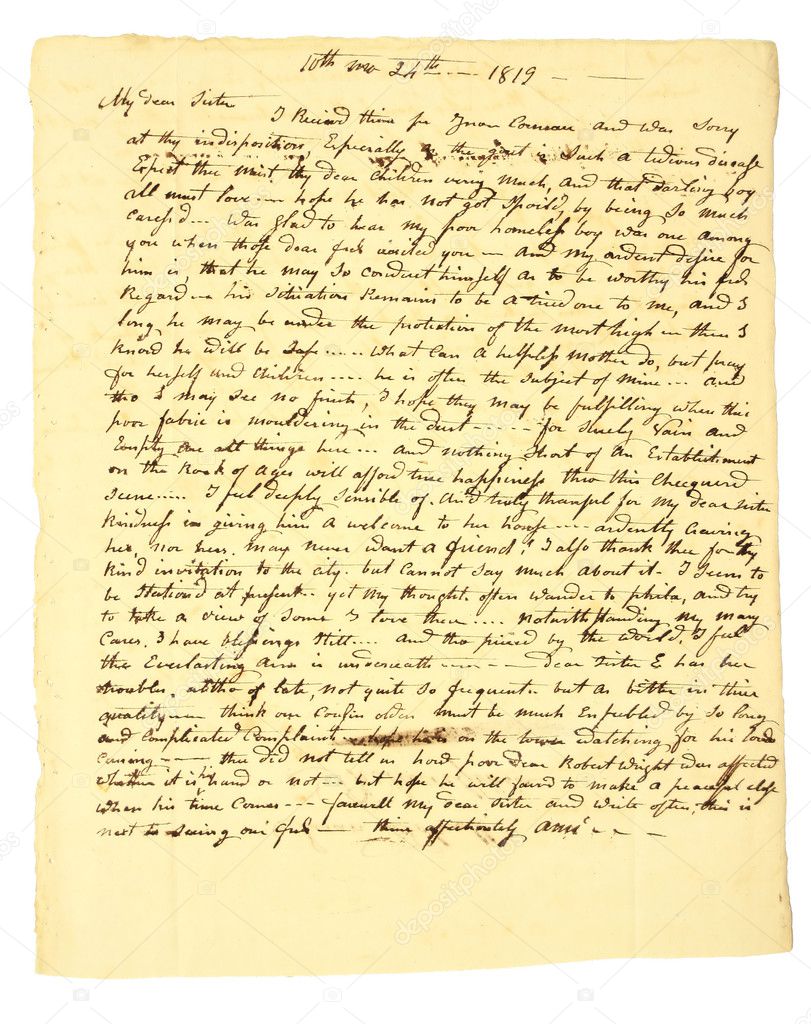 10th mo 24th --- 1819 - --
My dear Sister
I Reciev'd thine pr and was Sorry
at thy indisposition, Especially as the gout is Such a tedious disease
Expect thee mist thy dear Children very much, and that darling boy
all must love -- hope he has not got Spoild, by being So much
Caress'd --- was glad to hear my poor homeless boy was one among
you when those dear frds visited you -- and my ardent desire for
him is, that he may So conduct himself as to be worthy his frds
Regard -- his Situation Remains to be a tried one to me, and I
long he may be under the protection of the most high -- then I
know he will be Safe ..... what Can a helpless Mother do, but pray
for herself and Children .... he is often the Subject of mine ... and
tho I may See no fruits, I hope they may be fulfilling when this
poor fabric is mouldering in the dust ------ for Surely Vain and
Empty are all things here --- and nothing Short of an Establishment
on the Rock of ages will afford true happiness thro this Checquerd
Scene ..... I feel deeply Sensible of, and truly thankful for My dear Sister
kindness in giving him a welcome to her house ---- ardently Craving
her, nor hers, may never want a friend! I also thank thee for thy
kind invitation to the city. but Cannot Say much about it - I Seem to
be Station'd at present -- yet my thoughts often wander to phila, and try
to take a view of Some I love there .... notwithstanding my many
Cares, I have blessings Still .... and tho pierced by the world, I feel
the Everlasting Arm is underneath ------- dear Sister E has her
troubles, altho of late, not quite So frequent -- but as bitter in their
quality --- think our Cousin must be much Enfeebled by So long
and Complicated Complaint -- hope he is on the tower watching for his lords
coming ----, thee did not tell us how poor dear Robert Wright was affected
whether it is his hand or not -- but hope he will favord to make a peaceful close
when his time Comes --- farewell My dear Sister and write often, this is
next to Seeing our frds -- thine affectionately Ann
depositphotos